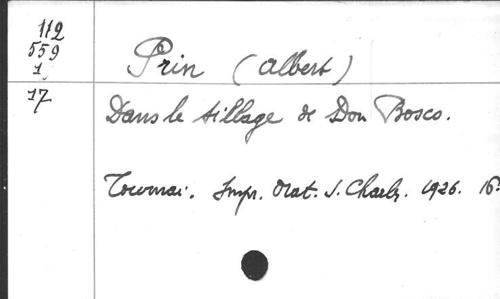 112
559
1
17
Prin (Albert)
Dans le sillage de Don Bosco.
Tournai. Impr. Orat. S. Charles. 1926. 16°